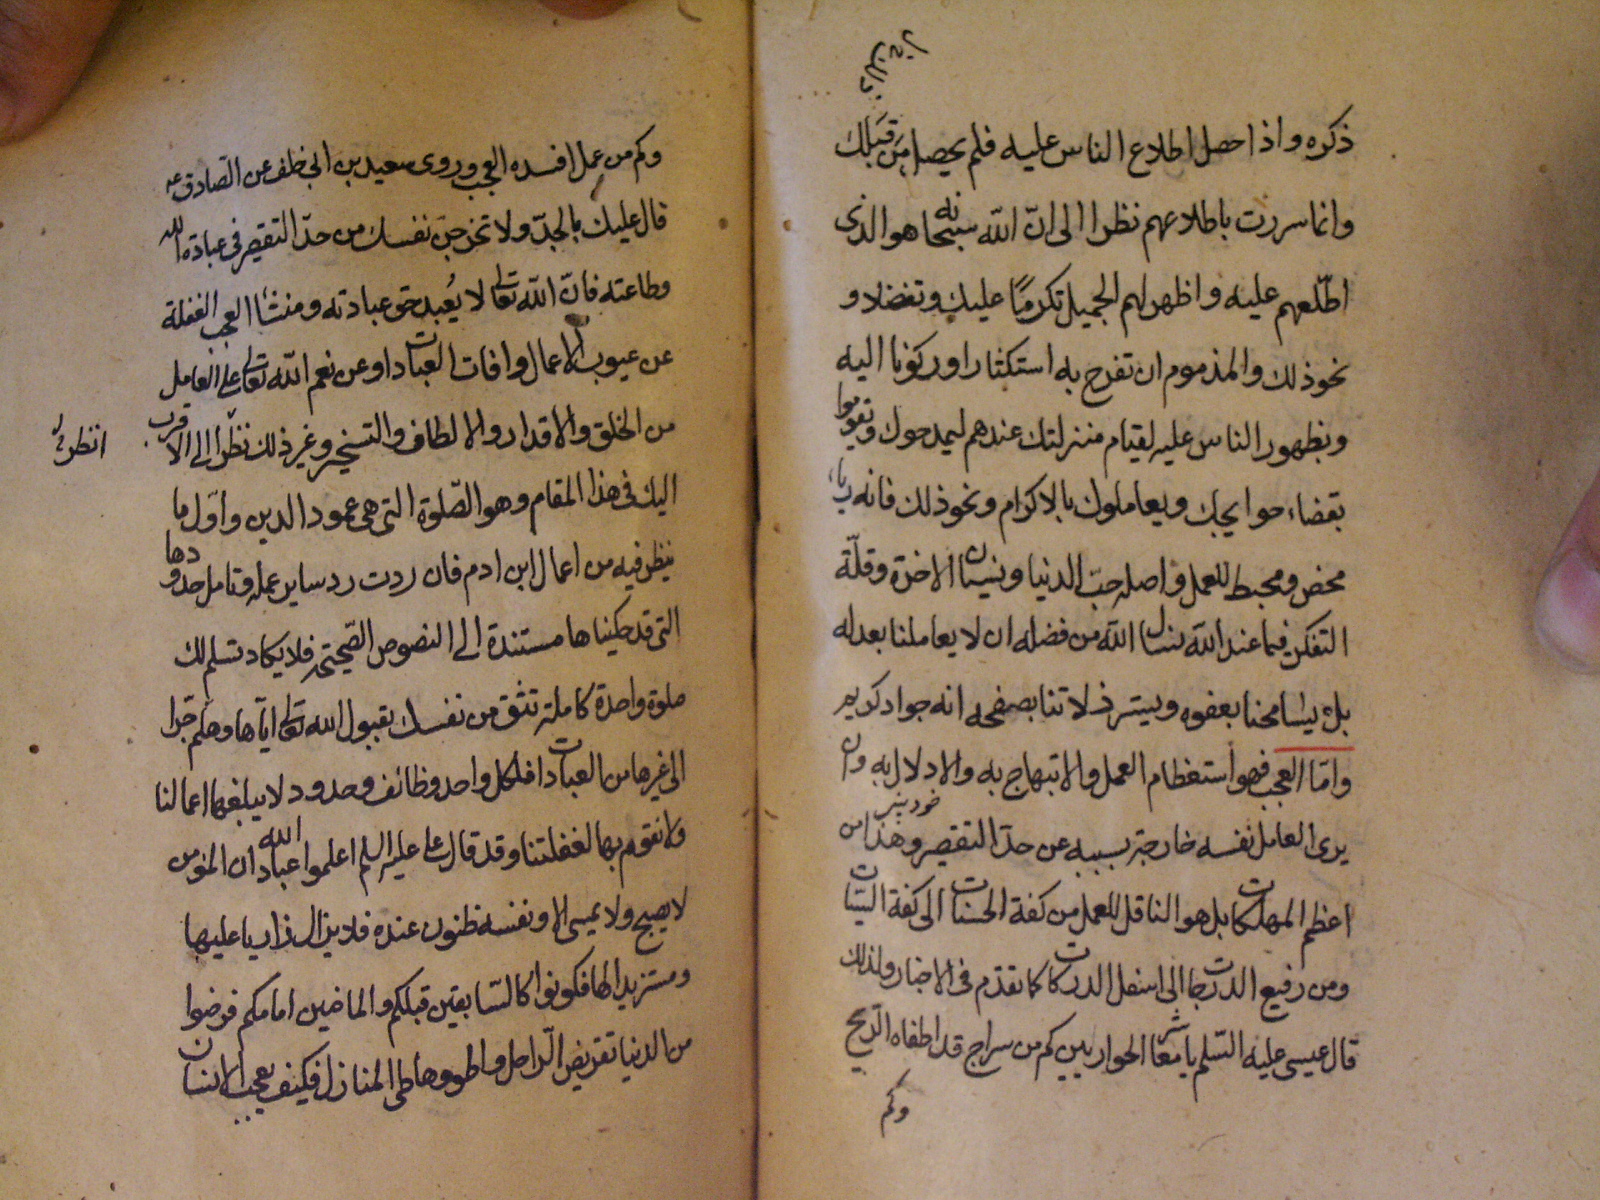 ذكره واذا حصل اطلاع الناس عليه فلم يحصل من قبلك
وانما سررت باطلاعهم نظرا الى انّ الله سبحانه هو الذى
اطّلعهم عليه واظهر لهم الجميل تكرمًا عليك وتفضلا و
نحو ذلك والمذموم ان تفرح به استكثارا وركونا اليه
وبظهور الناس عليه لقيام منزلتك عندهم ليمدحوك ويقوموا
بقضاء حوايجك ويعاملوك بالاكرام ونحو ذلك فانه رياء
محض ومحبط للعمل واصله حبّ الدنيا ونسيان الاخرة وقلّة
التفكر فيما عند الله نسال الله من فضله ان لا يعاملنا بعدله
بل يسامحنا بعفوه ويستر زلاتنا بصفحه انه جواد كريم
وامّا العجب فهو استعظام العمل والابتهاج به والادلال به وان
خود بينى
يرى العامل نفسه خارجة بسببه عن حدّ التقصير وهذا من
اعظم المهلكات بل هو الناقل للعمل من كفة الحسنات الى كفة السيّئات
ومن رفيع الدرجات الى اسفل الدركات كما تقدّم فى الاخبار ولذلك
قال عيسى عليه السّلم يا معاشر الحواريين كم من سراج قد اطفاه الرّيح
وكم
وكم من عمل افسده العجب وروى سعيد بن ابى خلف عن الصّادق عه
قال عليك بالجدّ ولا تخرجن نفسك من حدّ التقصير فى عبادة الله
وطاعته فانّ الله تعالى لا يُعبد حق عبادته ومنشأ العجب الغفلة
عن عيوب الاعمال وافات العبادات او عن نعم الله تعالى على العامل
من الخلق والاقدار والالطاف والتسخير وغير ذلك نظرا الى الاقرب
انظر
اليك فى هذا المقام وهو الصّلوة التى هى عمود الدين واوّل ما
ينظر فيه من اعمال ابن ادم فان ردت رد ساير عمله وتامل حدودها
التى قد حكيناها مستندة الى النصوص الصّحيحة فلا يكاد تسلم لك
صلوة واحدة كاملة تثق من نفسك بقبول الله تعالى اياها وهلم جرّا
الى غيرها من العبادات فلكل واحد وظائف وحدود لا يبلغها اعمالنا
ولا نقوم بها لغفلتنا وقد قال على عليه السلم اعلموا عباد الله ان المؤمن
لا يصبح ولا يمسى الا ونفسه ظنون عنده فلا يزال زاريا عليها
ومستزيدا لها فكونوا كالسّابقين قبلكم والماضين امامكم قوضوا
من الدنيا تقويض الرّاحل واطووها طى المنازل فكيف يعجب الانسان